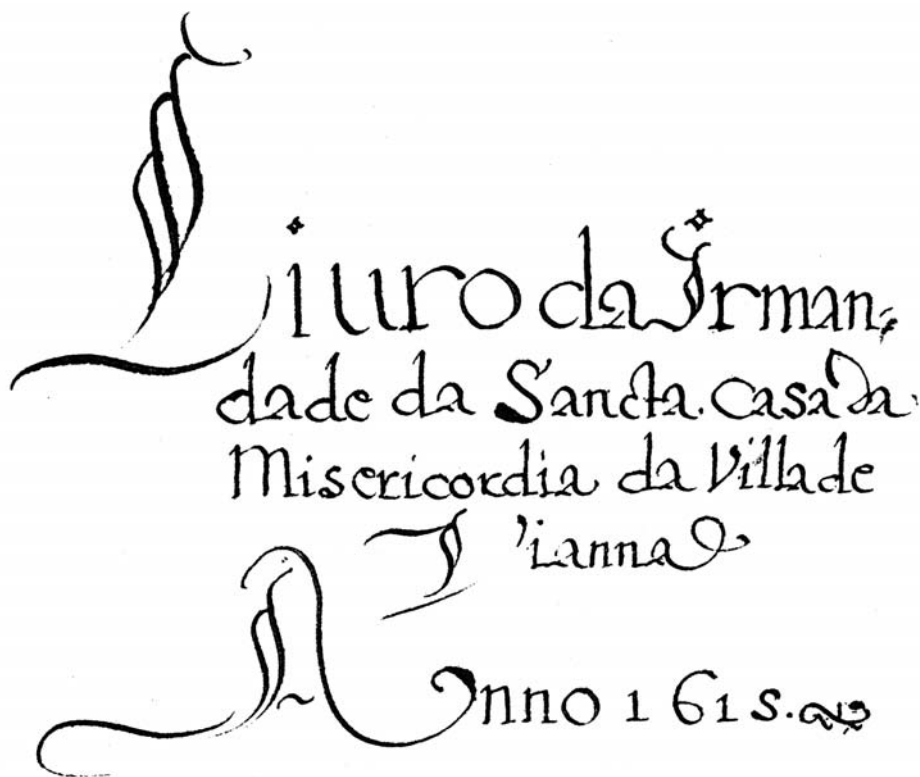 Liuro da Irman⸗
dade da Sancta. Casa da
Misericordia da Villa de
Vianna
Anno 1615.